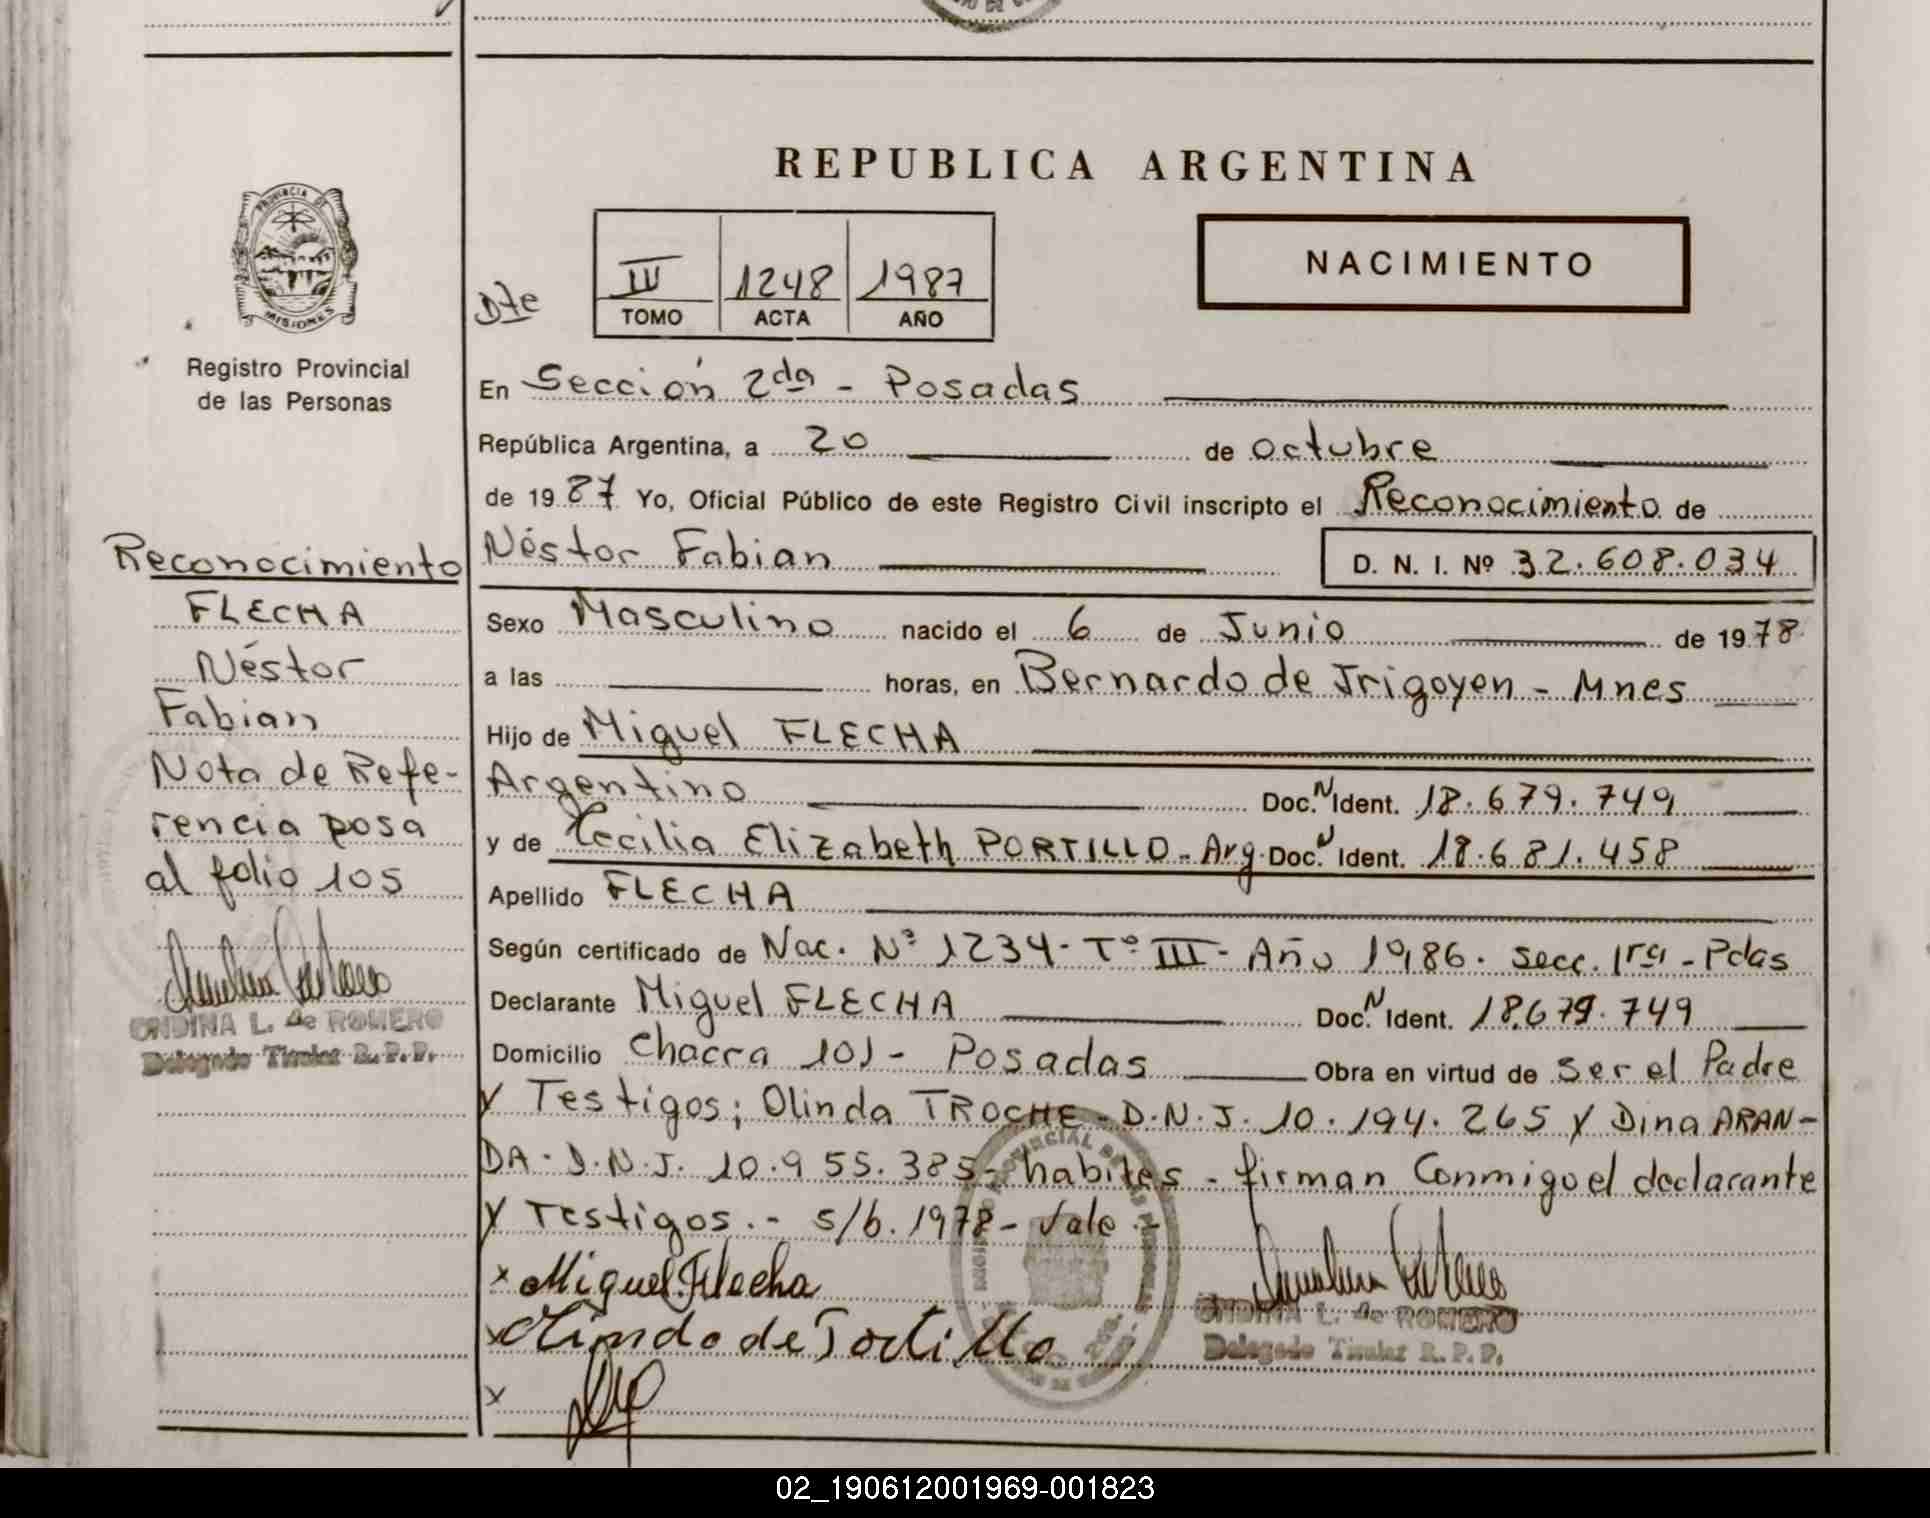 REPUBLICA ARGENTINA
PROVINCIA DE
MISIONES
Registro Provincial
de las Personas
NACIMIENTO
Dte
III 1248 1987
TOMO ACTA AÑO
En Sección 2da - Posadas
República Argentina, a 20 de octubre
de 1987 Yo, Oficial Público de este Registro Civil inscripto el Reconocimiento de
Néstor Fabian D. N. I. Nº 32.608.034
Sexo Masculino nacido el 6 de Junio de 1978
a las horas, en Bernardo de Irigoyen - Mnes
Hijo de Miguel FLECHA
Argentino Doc. N Ident. 18.679.749
y de Cecilia Elizabeth PORTILLO - Arg. Doc. N Ident. 18.681.458
Apellido FLECHA
Según certificado de Nac. Nº 1234 - Tº III - Año 1986. Secc. 1ra - Pdas
Declarante Miguel FLECHA Doc. N Ident. 18.679.749
Domicilio Chacra 101 - Posadas Obra en virtud de Ser el Padre
y Testigos; Olinda TROCHE - D.N.I. 10.194.265 y Dina ARAN-
DA - D.N.I. 10.955.385 - habiles - firman Conmiguel declarante
y Testigos. - 5/6.1978 - Vale -
x Miguel Flecha
x
x
ONDINA L. de ROMERO
Delegado Titular R. P. P.
Reconocimiento
FLECHA
Néstor
Fabian
Nota de Refe-
rencia posa
al folio 105
ONDINA L. de ROMERO
Delegado Titular R. P. P.
02_190612001969-001823